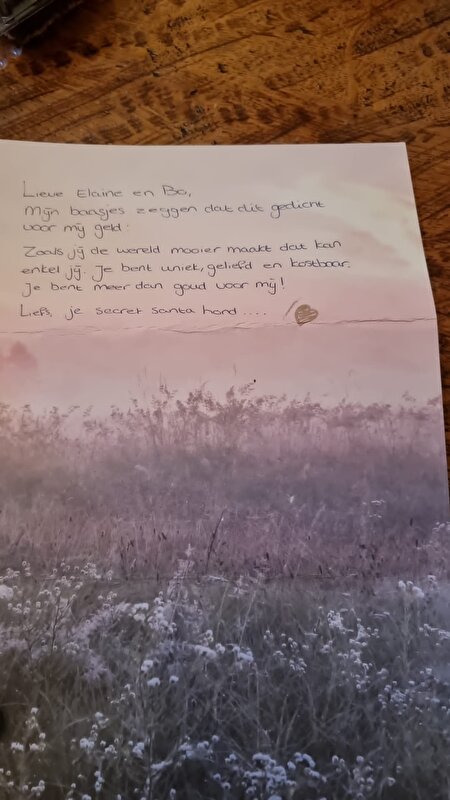 Lieve Elaine en Bo,
Mijn baasjes zeggen dat dit gedicht
voor mij geld:
Zoals jij de wereld mooier maakt dat kan
enkel jij. Je bent uniek, geliefd en kostbaar.
Je bent meer dan goud voor mij!
Liefs, je secret santa hond ....